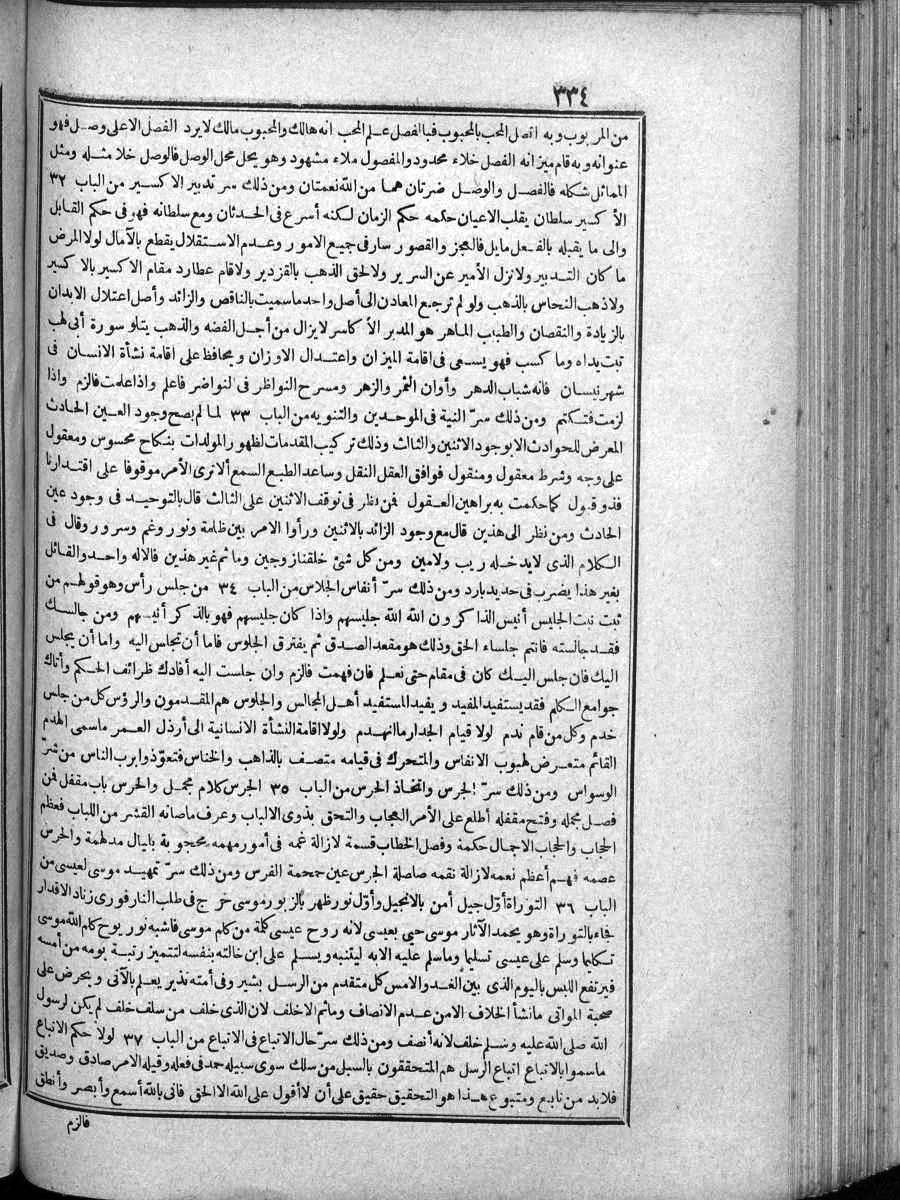 ٣٣٤
من المربوب وبه اتصل المحب بالمحبوب فبالفصل علم المحب انه هالك والمحبوب مالك لا يرد الفصل الا على وصل فهو
عنوانه وبه قام ميزانه الفصل خلاء محدود والمفصول ملاء مشهود وهو يحل محل الوصل فالوصل خلا مثله ومثل
المماثل شكله فالفصل والوصل ضرتان هما من الله نعمتان ومن ذلك سر تدبير الاكسير من الباب ٣٢
الاكسير سلطان يقلب الاعيان حكمه حكم الزمان لكنه أسرع فى الحدثان ومع سلطانه فهو فى حكم القابل
والى ما يقبله بالفعل مايل فالعجز والقصور سار فى جميع الامور وعدم الاستقلال يقطع بالآمال لولا المرض
ما كان التدبير ولا نزل الأمير عن السرير ولا لحق الذهب بالقزدير ولا قام عطارد مقام الاكسير بالاكسير
ولا ذهب النحاس بالذهب ولو لم ترجع المعادن الى أصل واحد ما سميت بالناقص والزائد وأصل اعتلال الابدان
بالزيادة والنقصان والطبيب الماهر هو المدبر الأكاسر لا يزال من أجل الفضه والذهب يتلو سورة أبى لهب
تبت يداه وما كسب فهو يسعى فى اقامة الميزان واعتدال الاوزان ويحافظ على اقامة نشأة الانسان فى
شهر نيسان فانه شباب الدهر وأوان الثمر والزهر ومسرح النواظر فى النواضر فاعلم واذا علمت فالزم واذا
لزمت فتكتم ومن ذلك سرّ النية فى الموحدين والتنويه من الباب ٣٣ لما لم يصح وجود العين الحادث
المعرض للحوادث الا بوجود الاثنين والثالث وذلك تركيب المقدمات لظهور المولدات بنكاح محسوس ومعقول
على وجه وشرط معقول ومنقول فوافق العقل النقل وساعد الطبع السمع ألا ترى الأمر موقوفا على اقتدارنا
فذوقبول كما حكمت به براهين العقول فمن نظر فى توقف الاثنين على الثالث قال بالتوحيد فى وجود عين
الحادث ومن نظر الى هذين قال مع وجود الزائد بالاثنين ورأوا الامر بين ظلمة ونور وغم وسرور وقال فى
الكلام الذى لا يدخله ريب ولا مين ومن كل شئ خلقنا زوجين وما ثم غير هذين فالاله واحد والقائل
بغير هذا يضرب فى حديد بارد ومن ذلك سرّ أنفاس الجلاس من الباب ٣٤ من جلس رأس وهو قولهم من
ثبت نبت الجليس أنيس الذاكرون الله الله جليسهم واذا كان جليسهم فهو بالذكر أنيسهم ومن جالسك
فقد جالسته فانتم جلساء الحق وذلك هو مقعد الصدق ثم يفترق الجلوس فاما أن تجلس اليه واما أن يجلس
اليك فان جلس اليك كان فى مقام حتى نعلم فان فهمت فالزم وان جلست اليه أفادك ظرائف الحكم وأتاك
جوامع الكلم فقد يستفيد المفيد ويفيد المستفيد أهل المجالس والجلوس هم المقدمون والرؤس كل من جلس
خدم وكل من قام ندم لولا قيام الجدار ما انهدم ولولا اقامة النشأة الانسانية الى أرذل العمر ما سمى الهدم
القائم متعرض لهبوب الانفاس والمتحرك فى قيامه متصف بالذاهب والخناس فتعوّذوا برب الناس من شرّ
الوسواس ومن ذلك سرّ الجرس واتخاذ الحرس من الباب ٣٥ الجرس كلام مجمل والحرس باب مقفل فمن
فصل مجمله وفتح مقفله أطلع على الأمر العجاب والتحق بذوى الالباب وعرف ما صانه القشر من اللباب فعظم
الحجاب والحجاب الاجمال حكمة وفصل الخطاب قسمة لازالة غمه فى أمور مهمه محجوبة بليال مدلهمة والحرس
عصمه فهم أعظم نعمه لازالة نقمه صلصلة الجرس عين حمحمة الفرس ومن ذلك سرّ تمهيد موسى لعيسى من
الباب ٣٦ التوراة أوّل جيل أمن بالانجيل وأوّل نور ظهر بالزبور موسى خرج فى طلب النار فورى زناد الاقدار
فجاء بالتوراة وهو يحمد الآثار موسى حيى بعيسى لانه روح عيسى كلمة من كلم موسى فاشبه نور يوح كلم الله موسى
تكليما وسلم على عيسى تسليما وما سلم عليه الا به لينبه بنفسه ويسلم على ابن خالته بنفسه لتتميز رتبة يومه من أمسه
فيرتفع اللبس باليوم الذى بين الغد والامس كل متقدم من الرسل بشير وفى أمته نذير يعلم بالآتى ويحرض على
صحبة المواتى ما نشأ الخلاف الا من عدم الانصاف وما ثم الا خلف لان الذى خلف من سلف خلف لم يكن لرسول
الله صلى الله عليه وسلم خلف لانه أنصف ومن ذلك سرّ حال الاتباع فى الاتباع من الباب ٣٧ لولا حكم الاتباع
ما سموا بالاتباع اتباع الرسل هم المتحققون بالسبل من سلك سوى سبيله حمد فى فعله وقيله الامر صادق وصديق
فلابد من تابع ومتبوع هذا هو التحقيق حقيق على أن لا أقول على الله الا الحق فانى بالله أسمع وأبصر وأنطق
فالزم